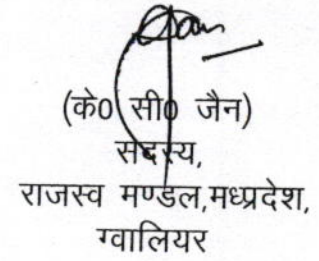 (के0 सी0 जैन)
सदस्य,
राजस्व मण्डल,मध्यप्रदेश,
ग्वालियर